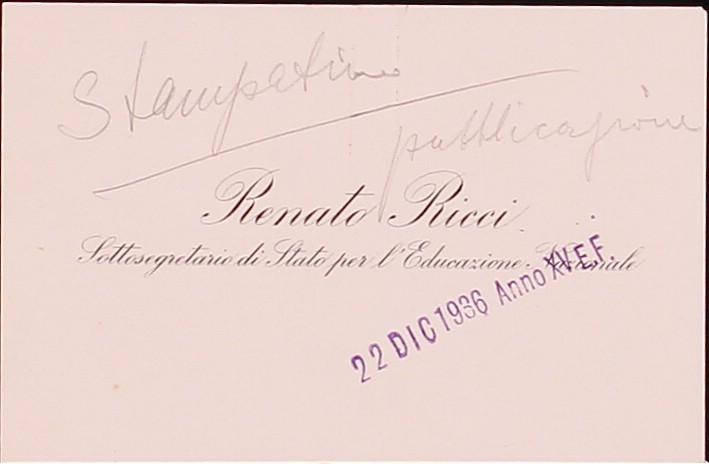 Stampatino
pubblicazione
Renato Ricci
Sottosegretario di Stato per l'Educazione Nazionale
22 DIC 1936 Anno XV E.F.